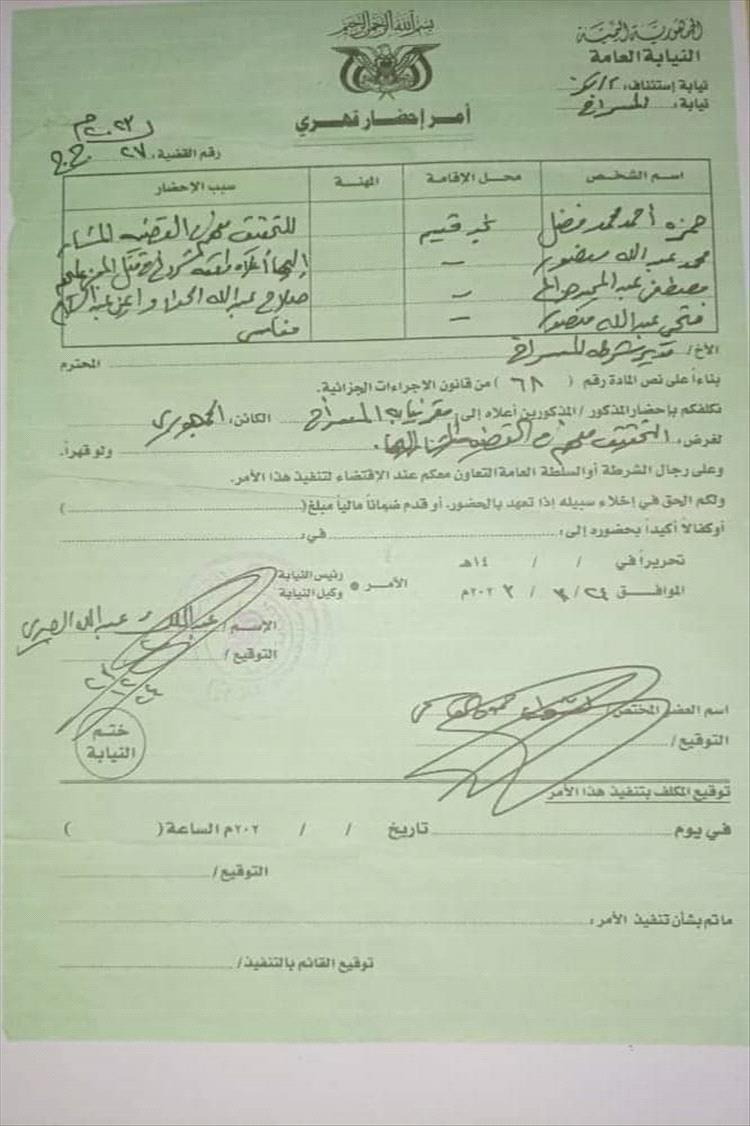 بسم الله الرحمن الرحيم
الجمهورية اليمنية
النيابة العامة
نيابة إستئناف:
نيابة: المسراخ
أمر إحضار قهري
٢٠٢٣م
رقم القضية: ٢٧ ج.ج
اسم الشخص محل الإقامة المهنة سبب الإحضار
حمزه أحمد محمد فضل للتحقيق معهم في القضيه المشار
محمد عبدالله منصور – إليها أعلاه قتل المجني عليهم
مصطفى عبدالمجيد – صلاح عبدالله
فتحي عبدالله منصور –
الأخ/ مدير شرطه المسراخ المحترم
بناءاً على نص المادة رقم ( ٦٨ ) من قانون الاجراءات الجزائية.
نكلفكم بإحضار المذكور / المذكورين أعلاه إلى مقر نيابه المسراخ الكائن:
لغرض: التحقيق معهم في القضيه ولو قهراً.
وعلى رجال الشرطة أو السلطة العامة التعاون معكم عند الإقتضاء لتنفيذ هذا الأمر.
ولكم الحق في إخلاء سبيله إذا تعهد بالحضور، أو قدم ضماناً مالياً مبلغ( )
أو كفالاً أكيداً بحضوره إلى: في:
تحريراً في / / ١٤هـ
الموافق ٢٤ / ٣ / ٢٠٢٣م
الأمر رئيس النيابة
وكيل النيابة
الإسم / عبدالملك عبدالله
التوقيع /
اسم العضو المختص /
التوقيع /
ختم
النيابة
توقيع المكلف بتنفيذ هذا الأمر
في يوم تاريخ / / ٢٠٢م الساعة ( )
التوقيع /
ما تم بشأن تنفيذ الأمر:
توقيع القائم بالتنفيذ /